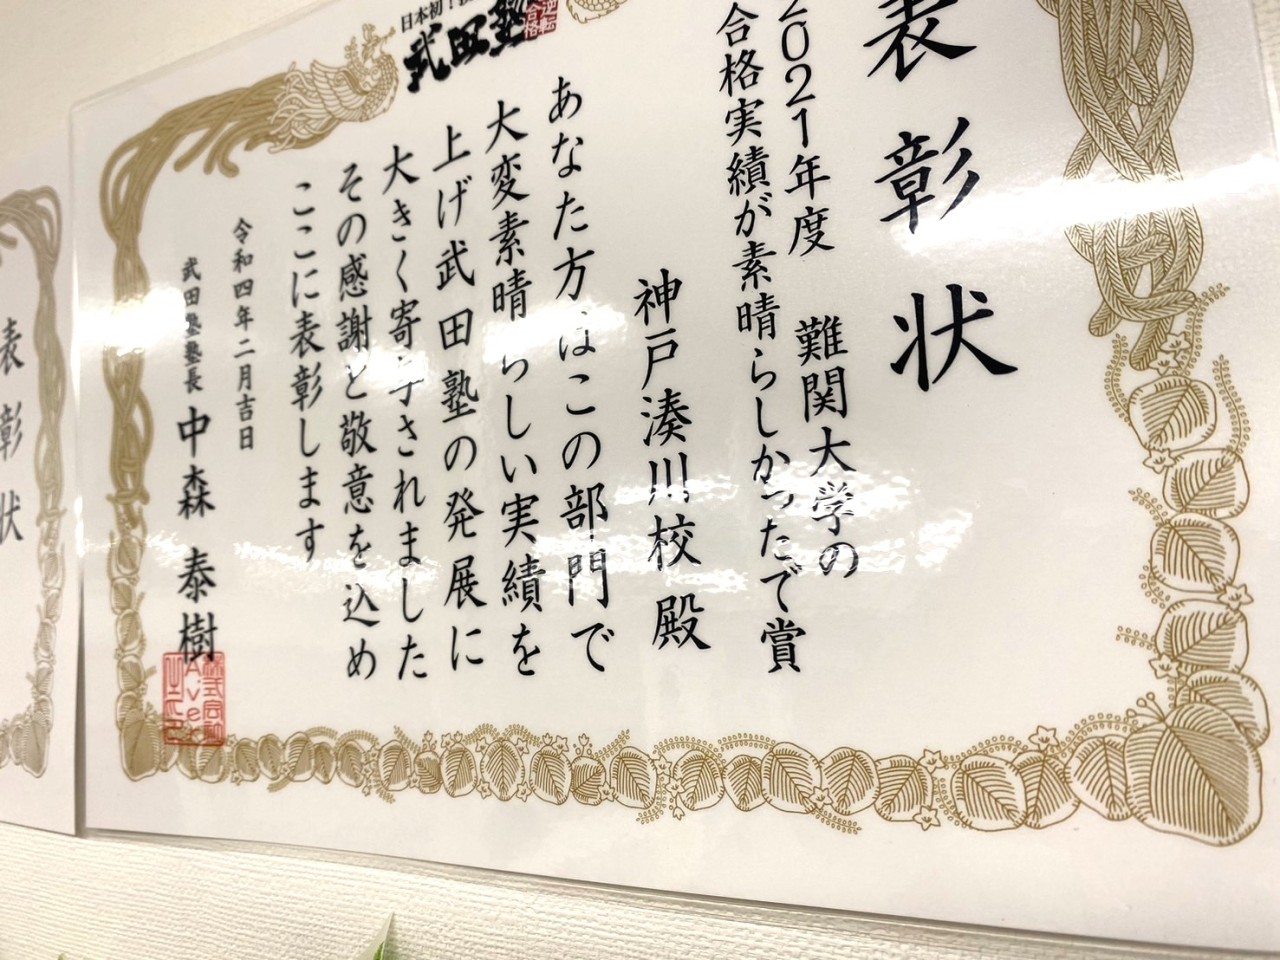 日本初!
武田塾
逆転
合格
表彰状
2021年度 難関大学の
合格実績が素晴らしかったで賞
神戸湊川校 殿
あなた方はこの部門で
大変素晴らしい実績を
上げ武田塾の発展に
大きく寄与されました
その感謝と敬意を込め
ここに表彰します
令和四年二月吉日
武田塾塾長 中森 泰樹
表彰状